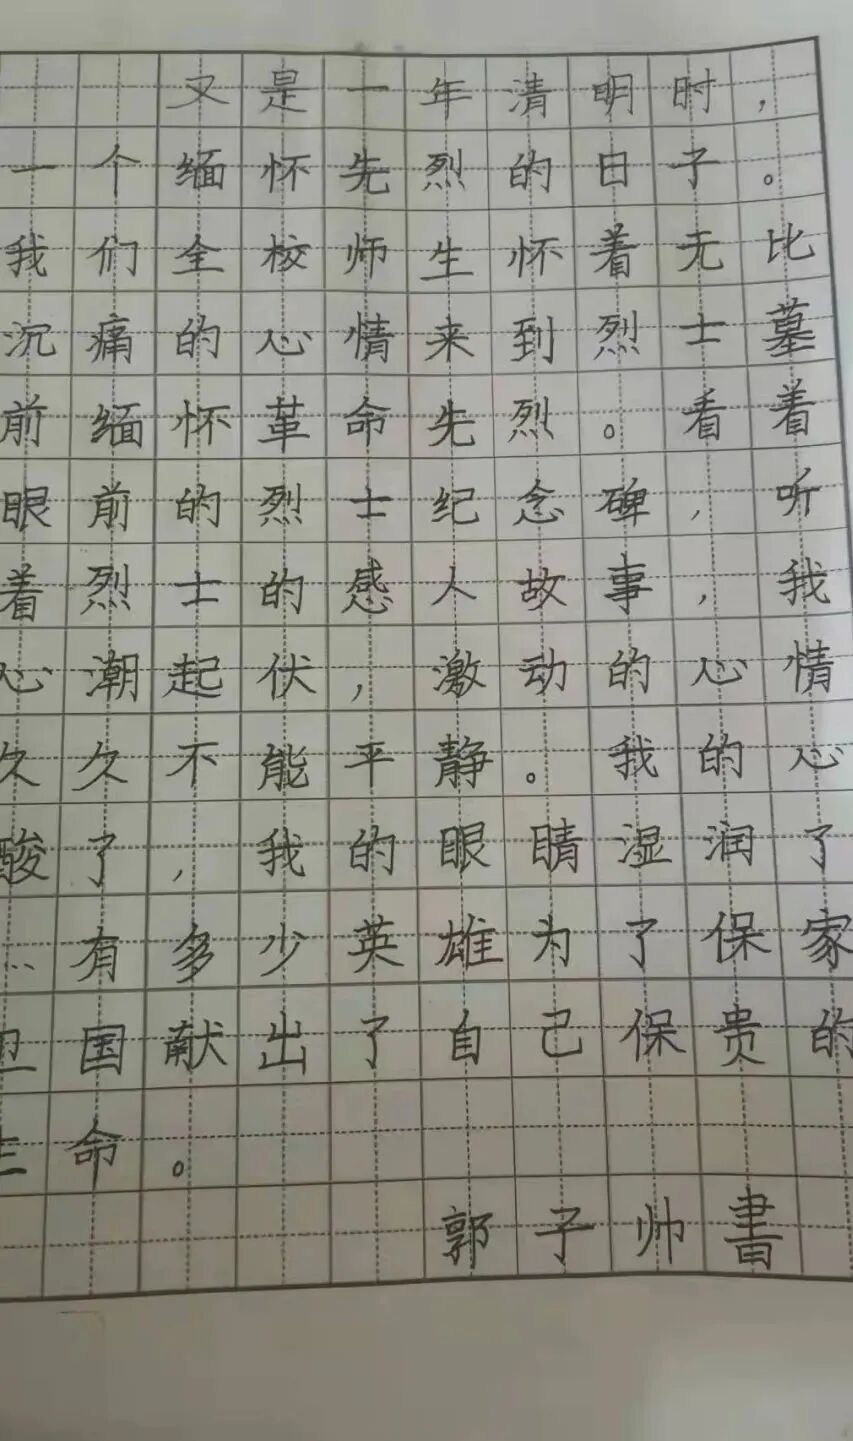 又是一年清明时，
一个缅怀先烈的日子。
我们全校师生怀着无比
沉痛的心情来到烈士墓
前缅怀革命先烈。看着
眼前的烈士纪念碑，听
着烈士的感人故事，我
心潮起伏，激动的心情
久久不能平静。我的心
酸了，我的眼睛湿润了
…有多少英雄为了保家
卫国献出了自己保贵的
生命。
郭子帅書